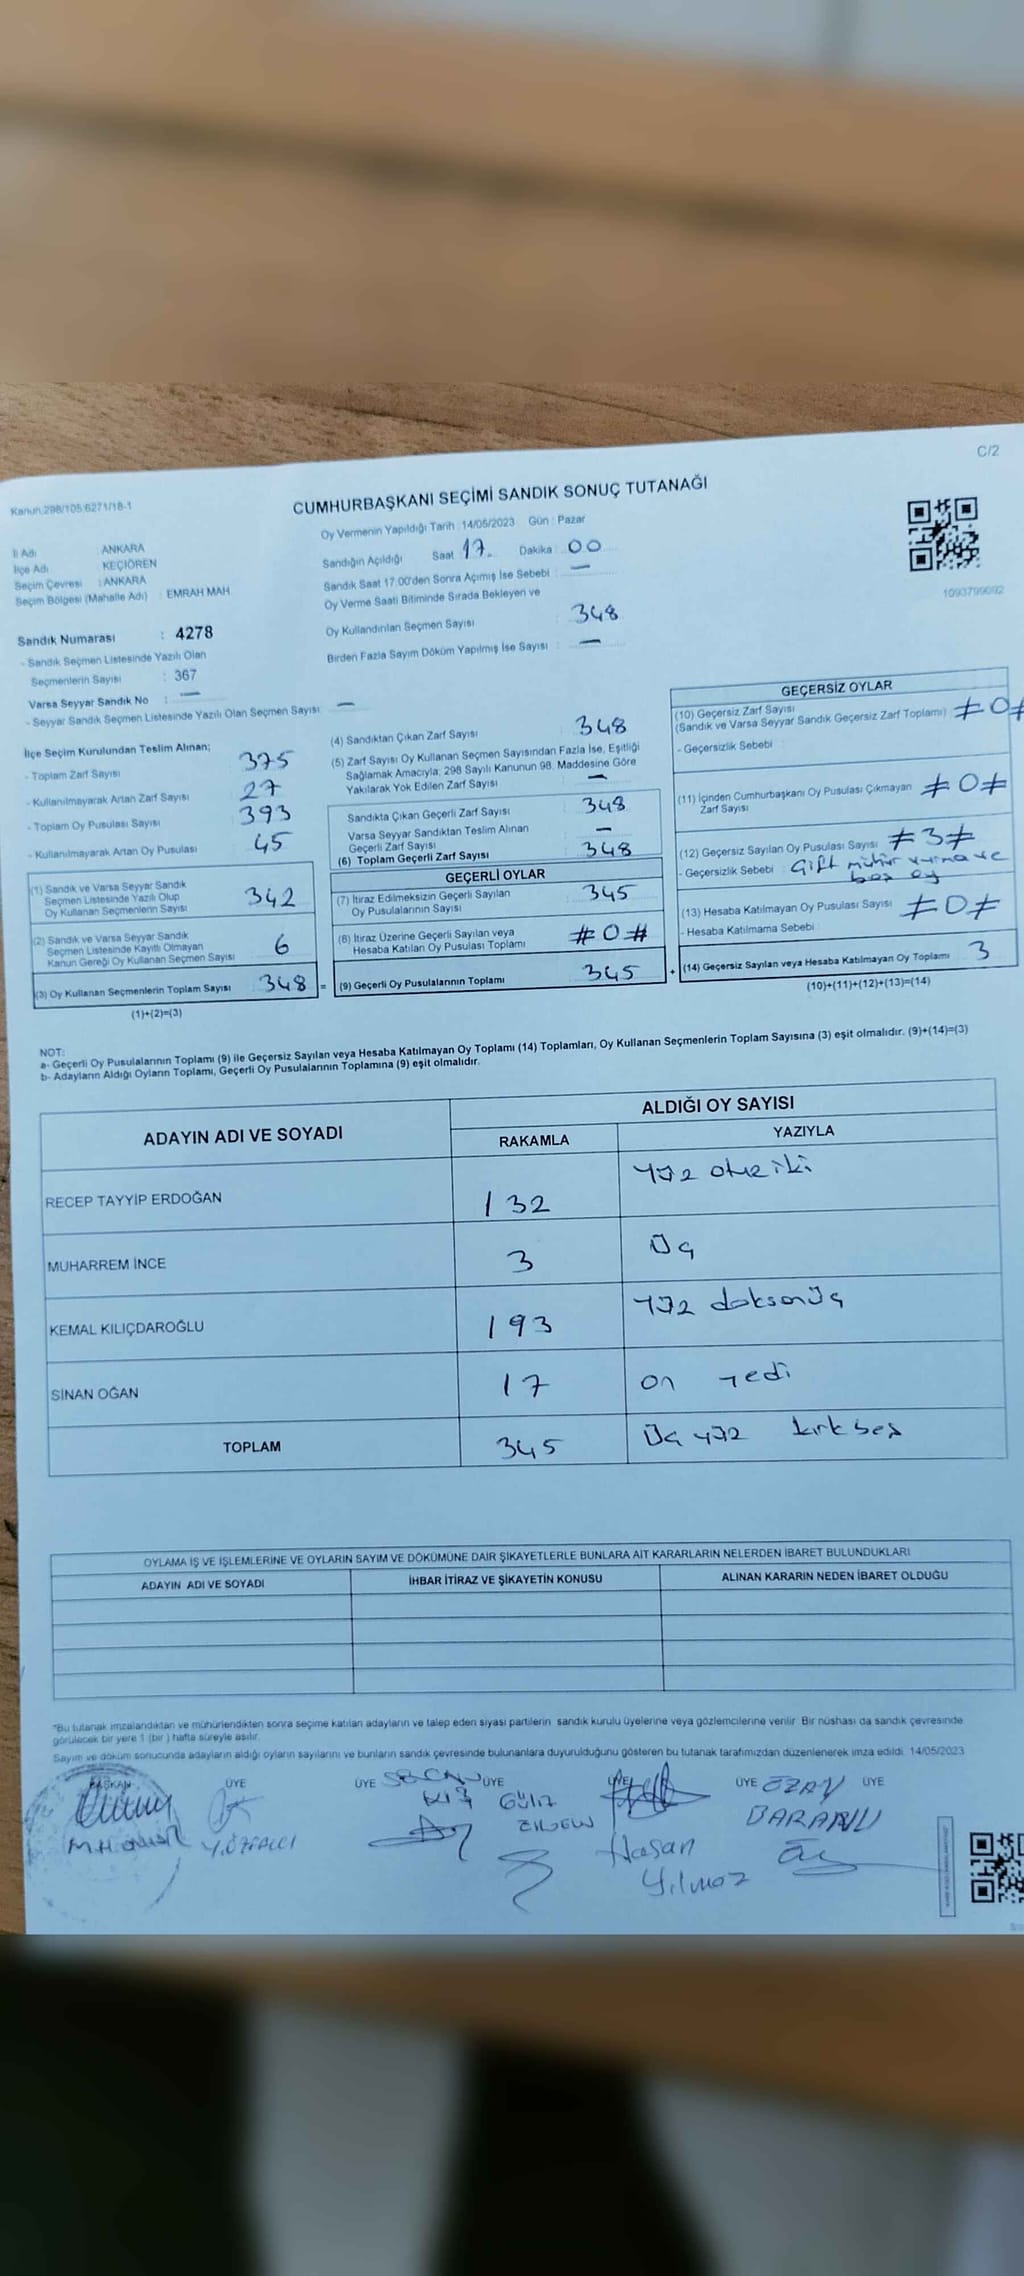 C/2
Kanun:298/105;6271/18-1
CUMHURBAŞKANI SEÇİMİ SANDIK SONUÇ TUTANAĞI
Oy Vermenin Yapıldığı Tarih : 14/05/2023 Gün : Pazar
İl Adı : ANKARA
İlçe Adı : KEÇİÖREN
Seçim Çevresi : ANKARA
Seçim Bölgesi (Mahalle Adı) : EMRAH MAH
Sandığın Açıldığı Saat 17. Dakika : 00
Sandık Saat 17.00'den Sonra Açımış İse Sebebi : —
Oy Verme Saati Bitiminde Sırada Bekleyen ve
Oy Kullandırılan Seçmen Sayısı : 348
Birden Fazla Sayım Döküm Yapılmış İse Sayısı : —
1093799092
Sandık Numarası : 4278
- Sandık Seçmen Listesinde Yazılı Olan
Seçmenlerin Sayısı : 367
Varsa Seyyar Sandık No : —
- Seyyar Sandık Seçmen Listesinde Yazılı Olan Seçmen Sayısı: —
İlçe Seçim Kurulundan Teslim Alınan;
- Toplam Zarf Sayısı : 375
- Kullanılmayarak Artan Zarf Sayısı : 27
- Toplam Oy Pusulası Sayısı : 393
- Kullanılmayarak Artan Oy Pusulası : 45
(1) Sandık ve Varsa Seyyar Sandık
Seçmen Listesinde Yazılı Olup
Oy Kullanan Seçmenlerin Sayısı 342
(2) Sandık ve Varsa Seyyar Sandık
Seçmen Listesinde Kayıtlı Olmayan
Kanun Gereği Oy Kullanan Seçmen Sayısı 6
(3) Oy Kullanan Seçmenlerin Toplam Sayısı 348 =
(1)+(2)=(3)
(4) Sandıktan Çıkan Zarf Sayısı : 348
(5) Zarf Sayısı Oy Kullanan Seçmen Sayısından Fazla İse, Eşitliği
Sağlamak Amacıyla; 298 Sayılı Kanunun 98. Maddesine Göre
Yakılarak Yok Edilen Zarf Sayısı : —
Sandıkta Çıkan Geçerli Zarf Sayısı : 348
Varsa Seyyar Sandıktan Teslim Alınan
Geçerli Zarf Sayısı : —
(6) Toplam Geçerli Zarf Sayısı : 348
GEÇERLİ OYLAR
(7) İtiraz Edilmeksizin Geçerli Sayılan
Oy Pusulalarının Sayısı : 345
(8) İtiraz Üzerine Geçerli Sayılan veya
Hesaba Katılan Oy Pusulası Toplamı : #0#
(9) Geçerli Oy Pusulalarının Toplamı : 345 +
GEÇERSİZ OYLAR
(10) Geçersiz Zarf Sayısı
(Sandık ve Varsa Seyyar Sandık Geçersiz Zarf Toplamı) : #0#
- Geçersizlik Sebebi :
(11) İçinden Cumhurbaşkanı Oy Pusulası Çıkmayan : #0#
Zarf Sayısı
(12) Geçersiz Sayılan Oy Pusulası Sayısı : #3#
- Geçersizlik Sebebi : Çift mühür vurma ve
boş oy
(13) Hesaba Katılmayan Oy Pusulası Sayısı : #0#
- Hesaba Katılmama Sebebi :
(14) Geçersiz Sayılan veya Hesaba Katılmayan Oy Toplamı 3
(10)+(11)+(12)+(13)=(14)
NOT:
a- Geçerli Oy Pusulalarının Toplamı (9) ile Geçersiz Sayılan veya Hesaba Katılmayan Oy Toplamı (14) Toplamları, Oy Kullanan Seçmenlerin Toplam Sayısına (3) eşit olmalıdır. (9)+(14)=(3)
b- Adayların Aldığı Oyların Toplamı, Geçerli Oy Pusulalarının Toplamına (9) eşit olmalıdır.
ADAYIN ADI VE SOYADI ALDIĞI OY SAYISI
RAKAMLA YAZIYLA
RECEP TAYYİP ERDOĞAN 132 yüz otuz iki
MUHARREM İNCE 3 üç
KEMAL KILIÇDAROĞLU 193 yüz doksanüç
SİNAN OĞAN 17 on yedi
TOPLAM 345 üç yüz kırkbeş
OYLAMA İŞ VE İŞLEMLERİNE VE OYLARIN SAYIM VE DÖKÜMÜNE DAİR ŞİKAYETLERLE BUNLARA AİT KARARLARIN NELERDEN İBARET BULUNDUKLARI
ADAYIN ADI VE SOYADI İHBAR İTİRAZ VE ŞİKAYETİN KONUSU ALINAN KARARIN NEDEN İBARET OLDUĞU
*Bu tutanak imzalandıktan ve mühürlendikten sonra seçime katılan adayların ve talep eden siyasi partilerin sandık kurulu üyelerine veya gözlemcilerine verilir. Bir nüshası da sandık çevresinde
görülecek bir yere 1 (bir) hafta süreyle asılır.
Sayım ve döküm sonucunda adayların aldığı oyların sayılarını ve bunların sandık çevresinde bulunanlara duyurulduğunu gösteren bu tutanak tarafımızdan düzenlenerek imza edildi. 14/05/2023
BAŞKAN ÜYE ÜYE ÜYE ÜYE ÜYE ÜYE
ÖZAN
Hasan
Yılmaz